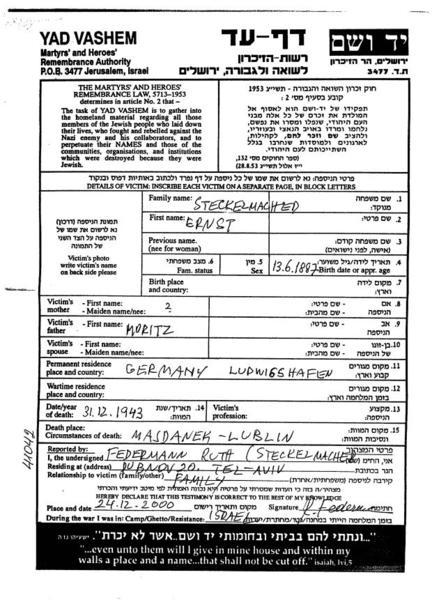 YAD VASHEM
Martyrs' and Heroes'
Remembrance Authority
P.O.B. 3477 Jerusalem, Israel
דף-עד
רשות-הזיכרון
לשואה ולגבורה, ירושלים
יד ושם
ירושלים, הר הזיכרון
ת.ד. 3477
THE MARTYRS' AND HEROES'
REMEMBRANCE LAW, 5713-1953
determines in article No. 2 that –
The task of YAD VASHEM is to gather into
the homeland material regarding all those
members of the Jewish people who laid down
their lives, who fought and rebelled against the
Nazi enemy and his collaborators, and to
perpetuate their NAMES and those of the
communities, organisations, and institutions
which were destroyed because they were
Jewish.
חוק זכרון השואה והגבורה - תשי"ג 1953
קובע בסעיף מס' 2:
תפקידו של יד-ושם הוא לאסוף אל
המולדת את זכרם של כל אלה מבני
העם היהודי, שנפלו ומסרו את נפשם,
נלחמו ומרדו באויב הנאצי ובעוזריו,
ולהציב שם וזכר להם, לקהילות,
לארגונים ולמוסדות שנחרבו בגלל
השתייכותם לעם היהודי.
(ספר החוקים מס' 132,
28.8.53)
DETAILS OF VICTIM: INSCRIBE EACH VICTIM ON A SEPARATE PAGE, IN BLOCK LETTERS
Family name: STECKELMACHED 1. שם משפחה
First name: ERNST 2. שם פרטי:
Previous name.
(nee for woman) 3. שם משפחה קודם:
(אישה, לפני נישואים)
Victim's photo
write victim's name
on back side please
6. מצב משפחתי
Fam. status
5. מין
Sex
13.6.1887 4. תאריך לידה/גיל משוער:
Birth date or appr. age
Birth place
and country: 7. מקום לידה
וארץ:
Victim's
mother
- First name: ? - שם פרטי: 8. אם
- Maiden name/nee: - שם מבית: הניספה
Victim's
father
- First name: MORITZ - שם פרטי: 9. אב
- Maiden name/nee: - שם מבית: הניספה
Victim's
spouse
- First name: - שם פרטי: 10. בן-זוגו
- Maiden name/nee: - שם מבית: של הניספה
Permanent residence
place and country: GERMANY LUDWIGSHAFEN 11. מקום מגורים
קבוע וארץ:
Wartime residence
place and country: 12. מקום מגורים
בזמן המלחמה וארץ:
Date/year
of death: 31.12.1943 14. תאריך/שנת
המוות:
Victim's
profession: 13. מקצוע
הניספה:
Death place:
Circumstances of death: MAJDANEK-LUBLIN 15. מקום המוות
ונסיבות המוות:
Reported by:
I, the undersigned FEDERMANN RUTH (STECKELMACHER
Residing at (address) DUBNOV 20. TEL-AVIV
Relationship to victim (family/other) FAMILY
HEREBY DECLARE THAT THIS TESTIMONY IS CORRECT TO THE BEST OF MY KNOWLEDGE
Place and date 24.12.2000 מקום ותאריך Signature R. Federm חתימה
During the war I was in: Camp/Ghetto/Resistance: ISRAEL
41042
"...ונתתי להם בביתי ובחומותי יד ושם...אשר לא יכרת".
"...even unto them will I give in mine house and within my
walls a place and a name...that shall not be cut off." Isaiah, lvi,5